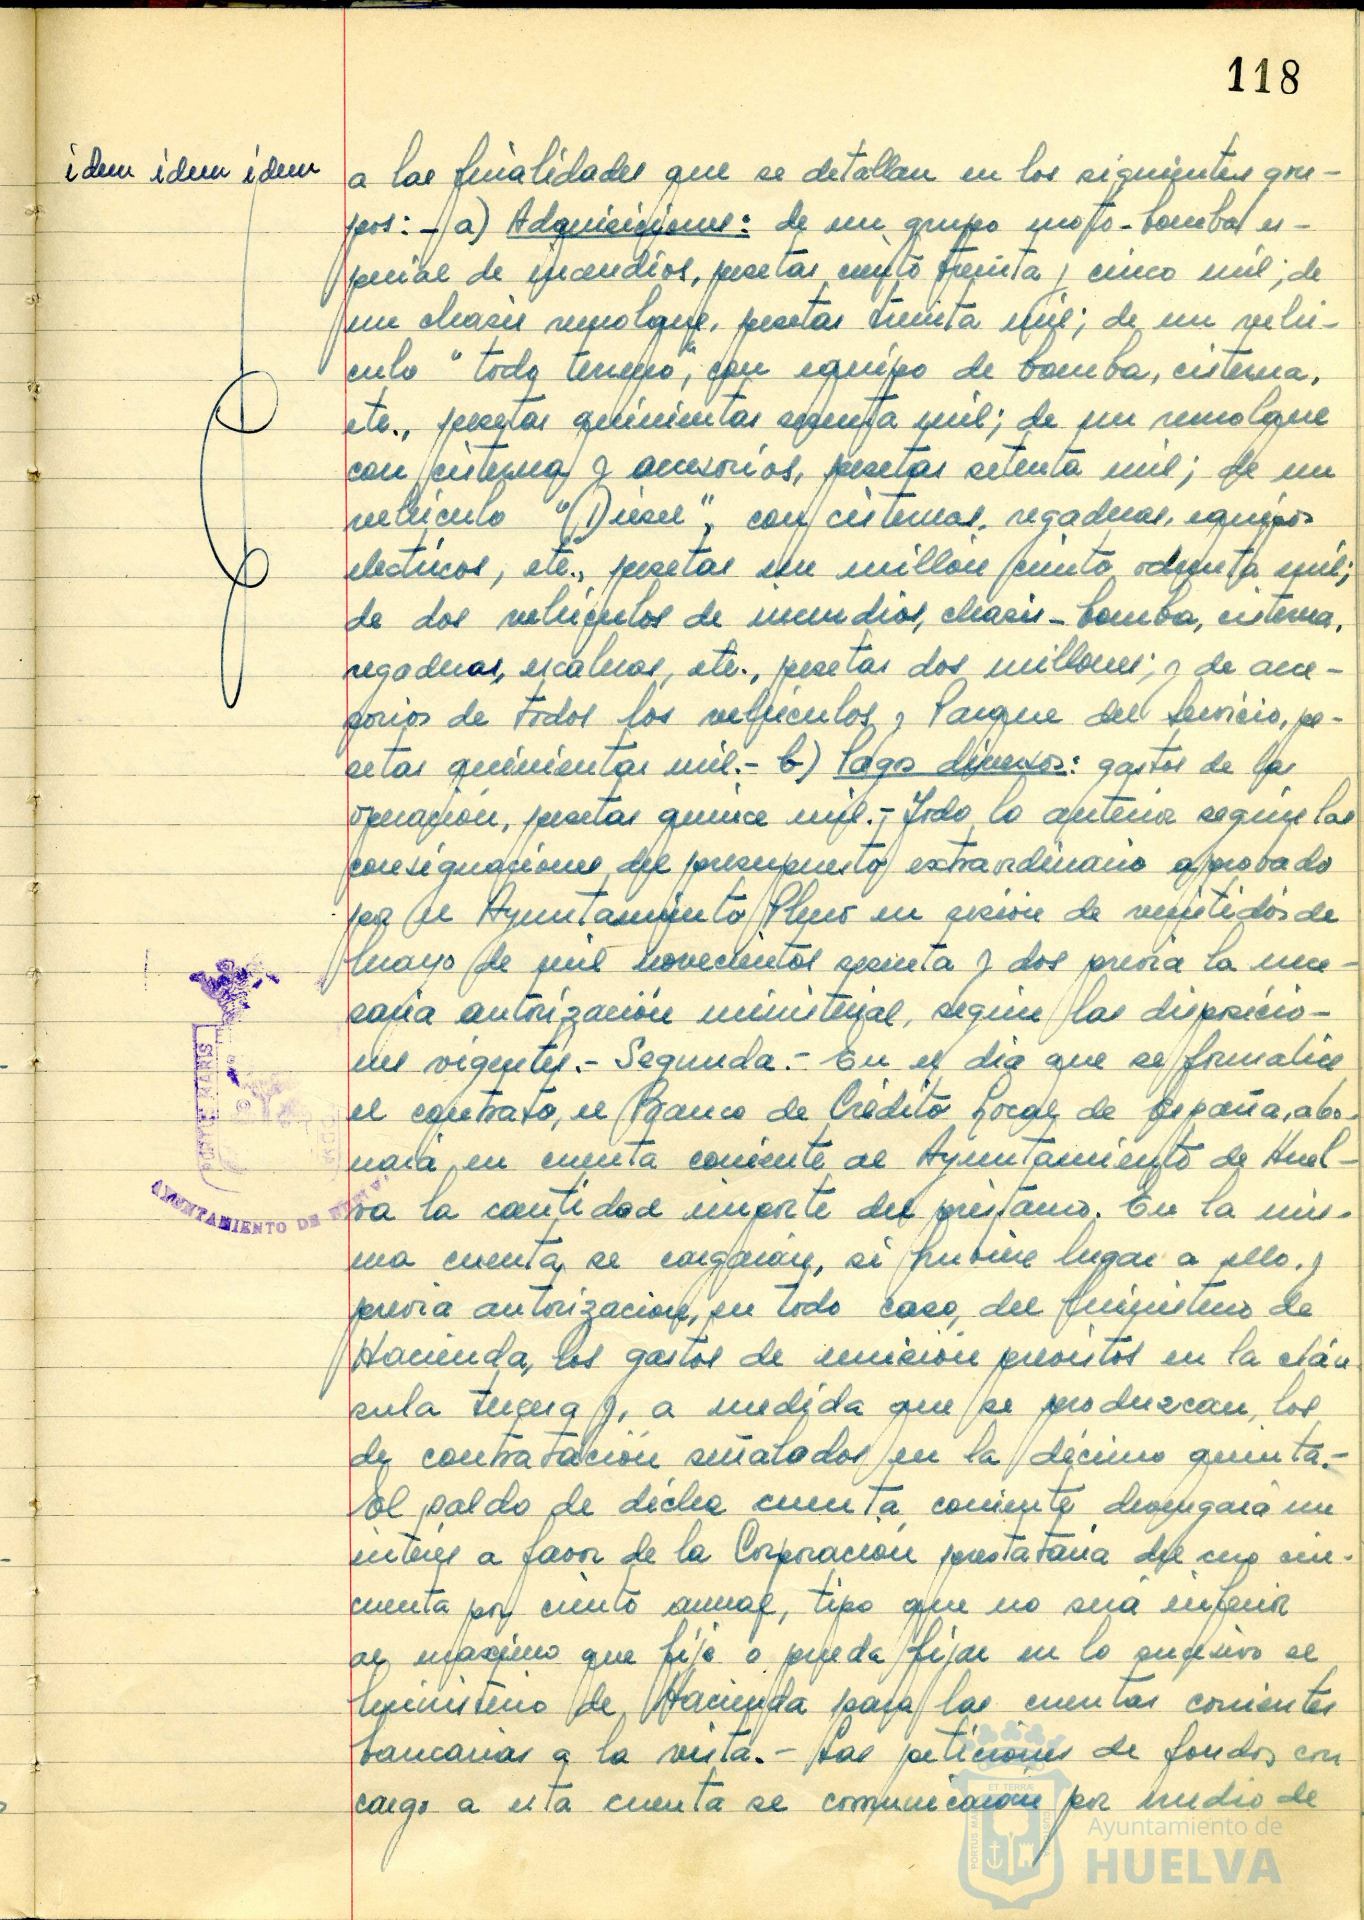 118
idem idem idem
a las finalidades que se detallan en los siguientes gru-
pos: - a) Adquisiciones: de un grupo moto-bomba es-
pecial de incendios, pesetas ciento treinta y cinco mil; de
un chasis remolque, pesetas treinta mil; de un vehí-
culo "todo terreno", con equipo de bomba, cisterna,
etc., pesetas quinientas sesenta mil; de un remolque
con cisterna y accesorios, pesetas setenta mil; de un
vehículo "Diesel", con cisternas, regaderas, equipos
electricos, etc., pesetas un millón ciento ochenta mil;
de dos vehículos de incendios, chasis-bomba, cisterna,
regaderas, escaleras, etc., pesetas dos millones; y de acce-
sorios de todos los vehículos y Parque del Servicio, pe-
setas quinientas mil.- b) Pagos diversos: gastos de la
operación, pesetas quince mil.- Todo lo anterior según las
consignaciones del presupuesto extraordinario aprobado
por el Ayuntamiento Pleno en sesión de veintidós de
Mayo de mil novecientos sesenta y dos previa la nece-
saria autorización ministerial, según las disposicio-
nes vigentes.- Segunda.- En el día que se formalice
el contrato, el Banco de Crédito Local de España, abo-
nará en cuenta corriente al Ayuntamiento de Huel-
va la cantidad importe del préstamo. En la mis-
ma cuenta se cargarán, si hubiere lugar a ello, y
previa autorización, en todo caso, del Ministerio de
Hacienda, los gastos de emisión previstos en la cláu-
sula tercera y, a medida que se produzcan, los
de contratación señalados en la décimo quinta.-
El saldo de dicha cuenta corriente devengará un
interés a favor de la Corporación prestataria del uno cin-
cuenta por ciento annual, tipo que no será inferior
al maximo que fije o pueda fijar en lo sucesivo el
Ministerio de Hacienda para las cuentas corrientes
bancarias a la vista.- Las peticiones de fondos con
cargo a esta cuenta se comunicarán por medio de
PORTUS MARIS
AYUNTAMIENTO DE
Ayuntamiento de
HUELVA